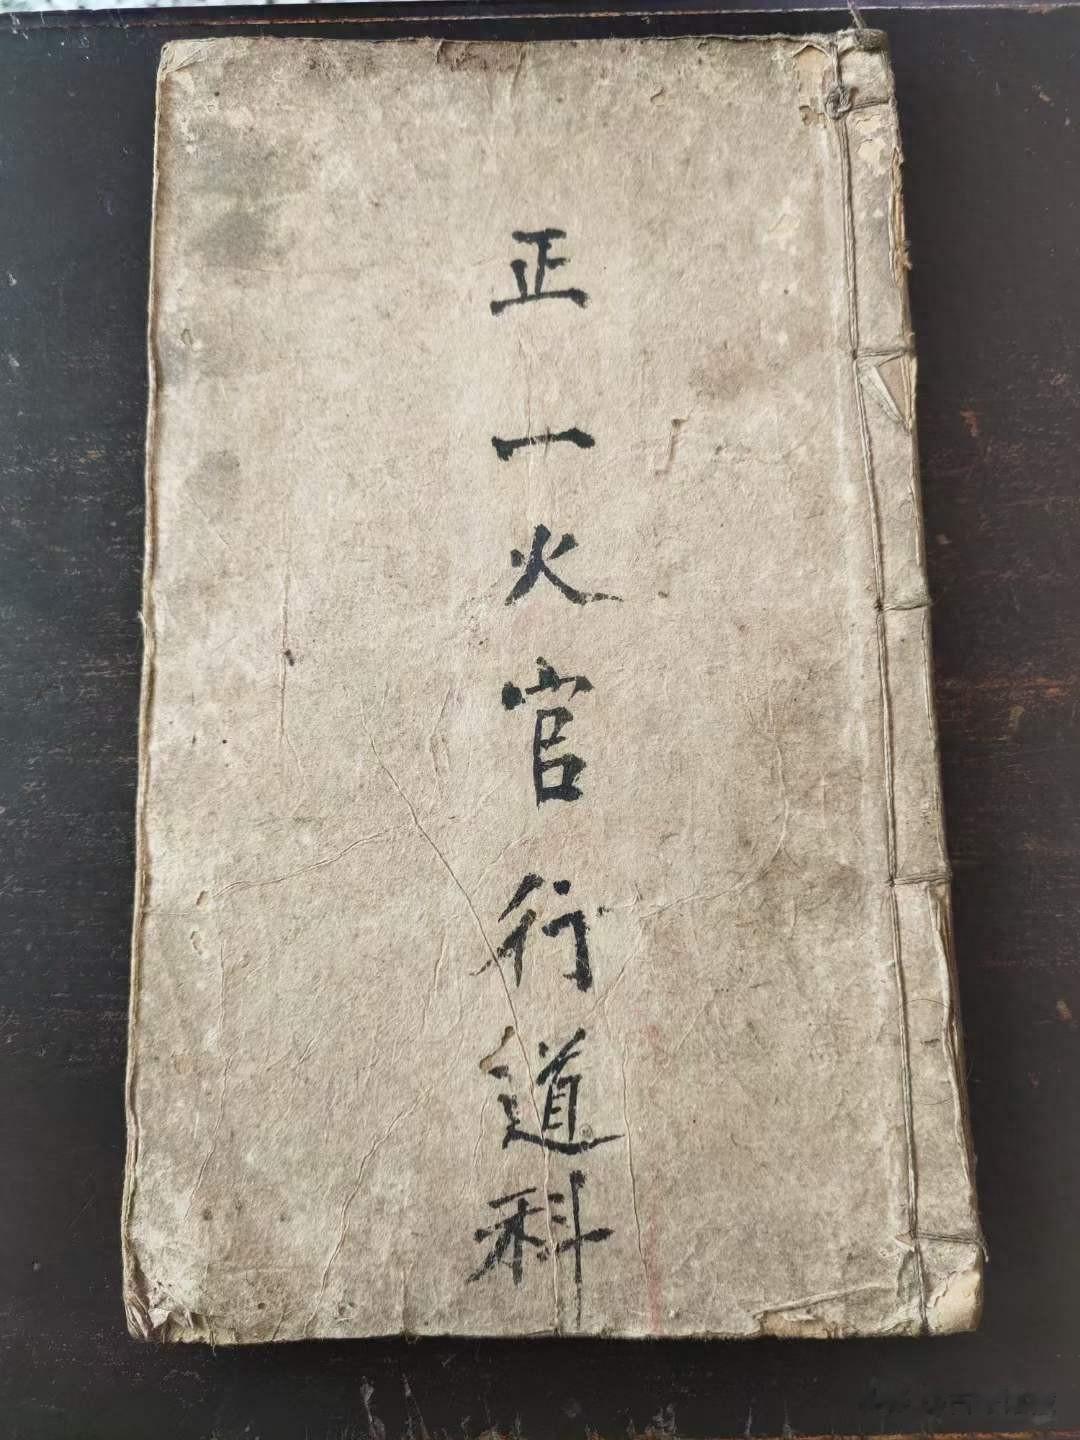 正一火官行道科